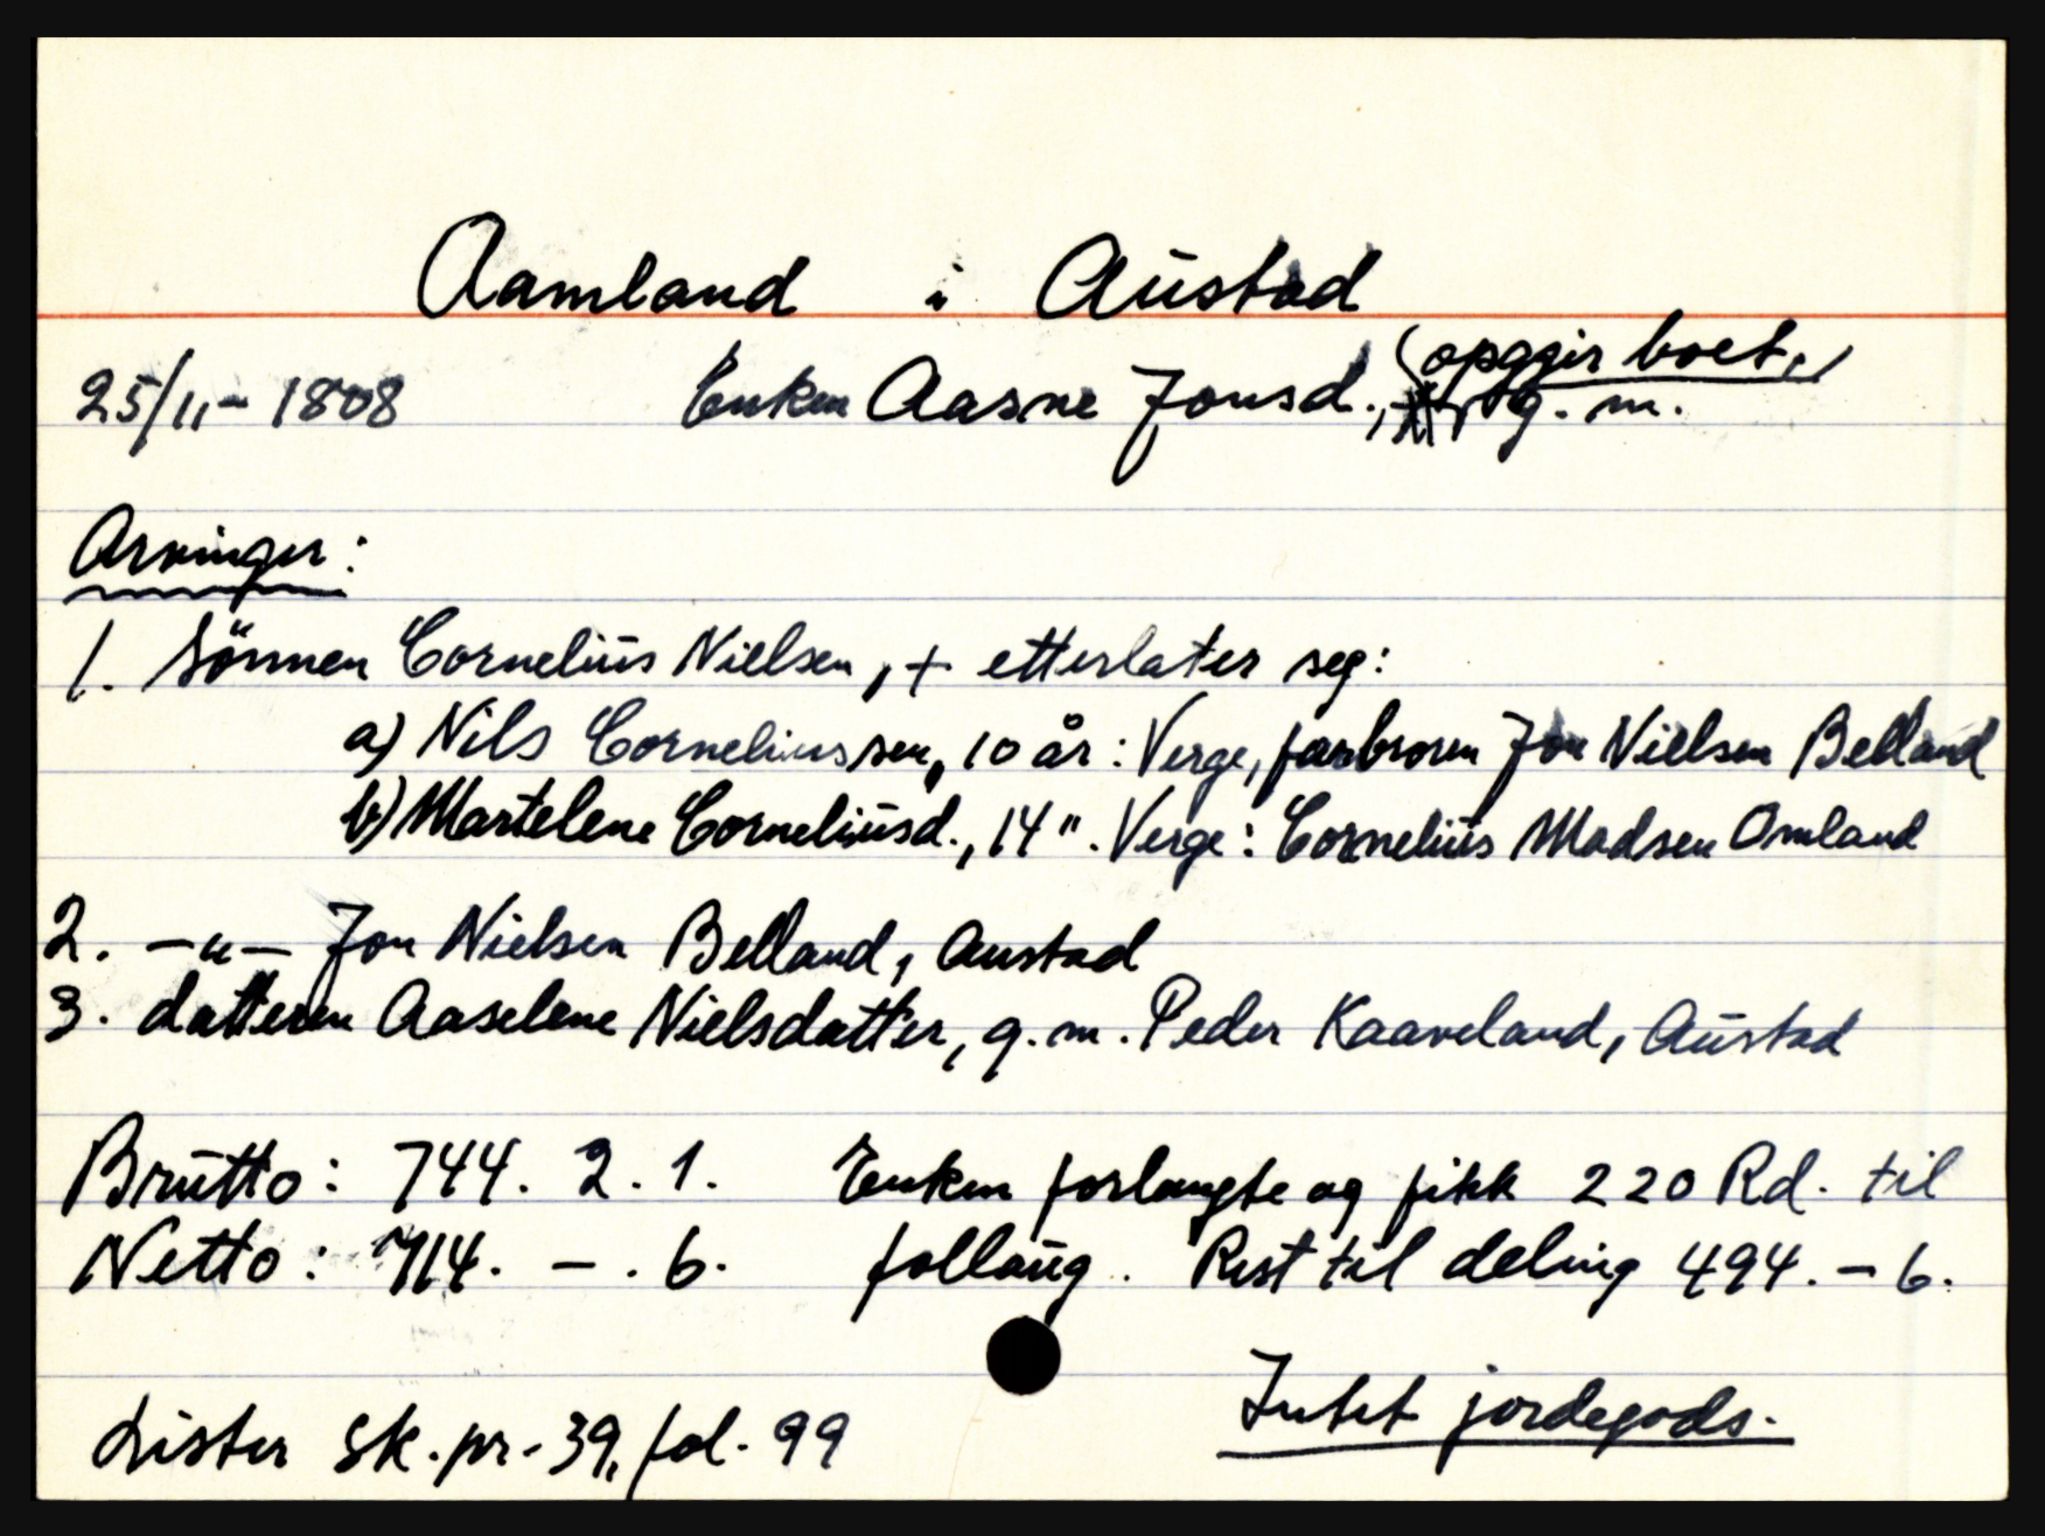 Aamland i Austad
(opgir boet,)
25/11- 1808 Enken Aasne Jonsd., g. m.
Arvinger:
1. Sönnen Cornelius Nielsen, + etterlater seg:
a) Nils Corneliussen, 10 år: Verge, farbroren Jon Nielsen Belland
b) Martelene Corneliusd., 14 ". Verge: Cornelius Madsen Omland
2. -"- Jon Nielsen Belland, Austad
3. datteren Aaselene Nielsdatter, g. m. Peder Kaaveland, Austad
Brutto: 744. 2. 1. Enken forlangte og fikk 220 Rd. til
Netto: 714. - . 6. følloug. Rest til deling 494. - 6.
Intet jordegods.
Lister sk. pr. 39, fol. 99